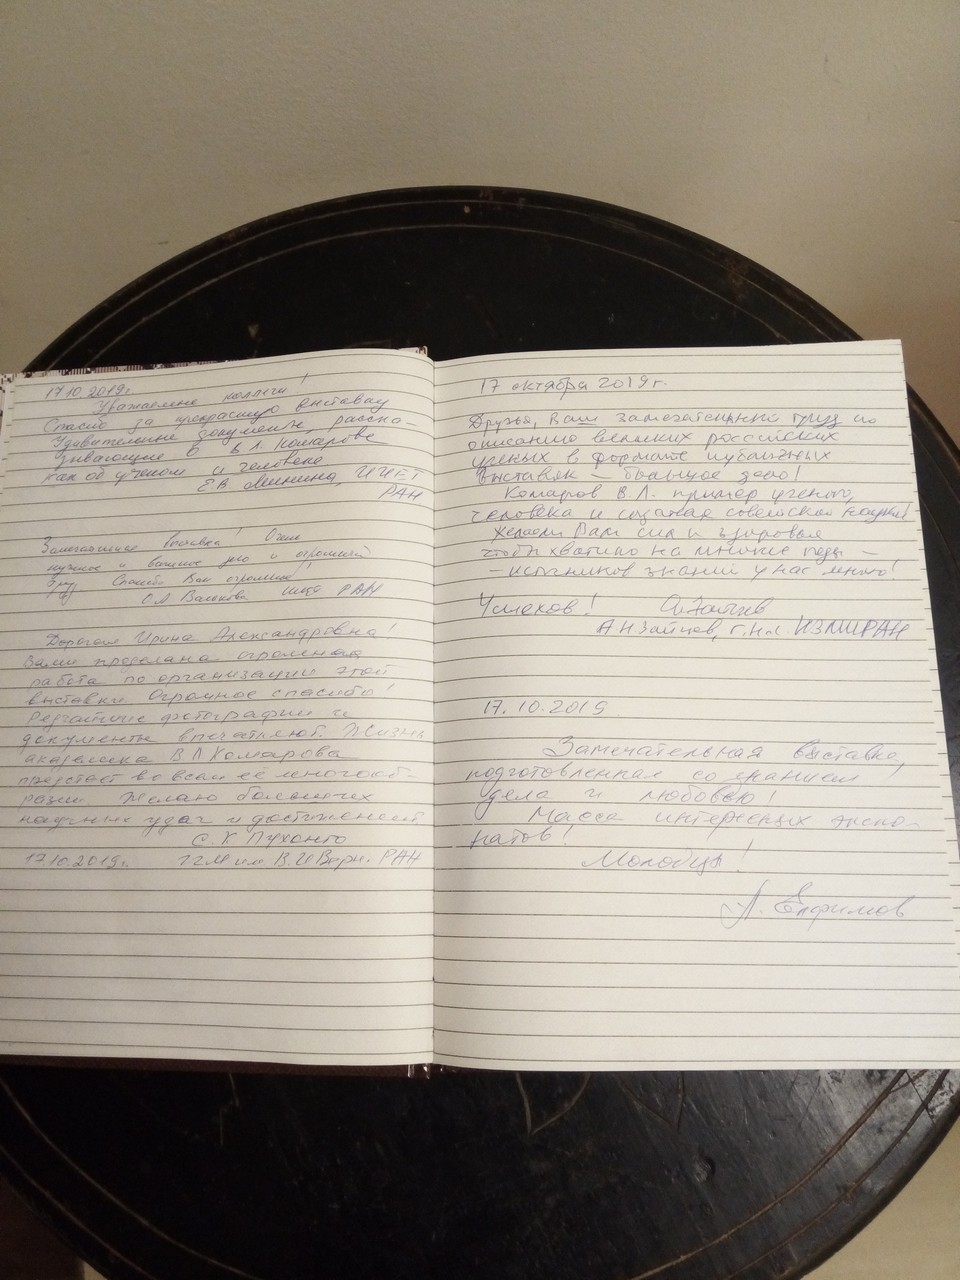 17.10.2019г.
Уважаемые коллеги!
Спасибо за прекрасную выставку
Удивительные документы, расска-
зывающие о В.Л. Комарове
как об ученом и человеке
Е.В. Минина, ИИЕТ
РАН
Замечательная выставка! Очень
нужное и важное дело и огромный
труд. Спасибо Вам огромное!
РАН
Дорогая Ирина Александровна!
Вами проделана огромная
работа по организации этой
выставки. Огромное спасибо!
фотографии и
документы впечатляют. Жизнь
академика В.Л. Комарова
предстает во всем её многооб-
разии. Желаю больших
научных удач и достижений
С.К. Пухонто
17.10.2019г. ГГМ им. В.И. Верн. РАН
17 октября 2019 г.
Друзья, Ваш замечательный труд по
описанию великих российских
ученых в формате публичных
выставок – большое дело!
Комаров В.Л. пример ученого,
человека и солдата советской науки!
Желаем Вам сил и здоровья
чтобы хватило на многие годы –
– источников знаний у нас много!
Успехов! А.Зайцев
А.Н. Зайцев, г.н.с. ИЗМИРАН
17.10.2019
Замечательная выставка,
подготовленная со знанием
дела и любовью!
Масса интересных экспо-
натов!
Молодцы!
А. Ефимов